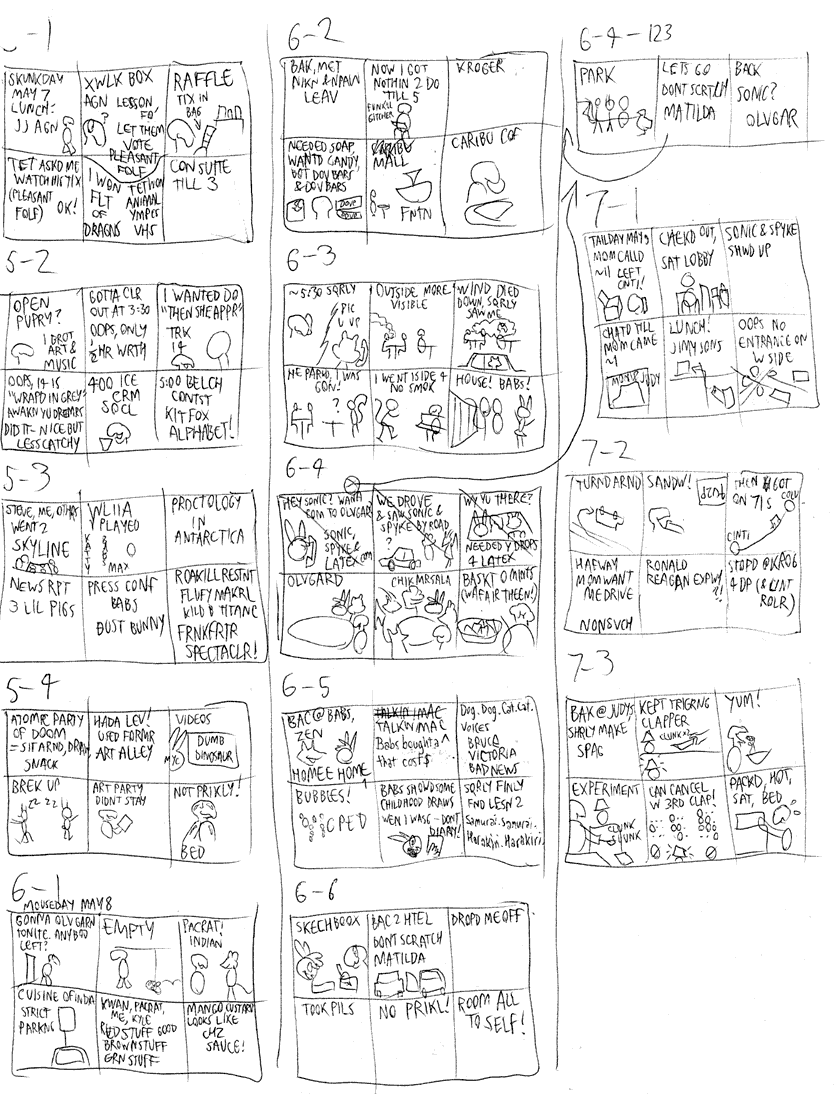 5-1
SKUNKDAY
MAY 7
LUNCH:
JJ AGN
XWLK BOX
AGN LESSON
FO,
LET THEM
VOTE
PLEASANT
FOLF
RAFFLE
TIX IN
BAG
TET ASKD ME
WATCH HIS TIX
(PLEASANT
FOLF) OK!
I WON
FLT
OF
DRAGNS
TET WON
ANIMAL
YMPCS
VHS
CON SUITE
TILL 3
5-2
OPEN
PUPRY?
I BROT
ART &
MUSIC
GOTTA CLR
OUT AT 3:30
OOPS, ONLY
½HR WRTH
I WANTED DO
"THEN SHE APPR"
TRK
OOPS, IT IS
"WRAPD IN GREY"
AWAKN YU DREMRS
DID IT - NICE BUT
LESS CATCHY
4:00 ICE
CRM
SOCL
5:00 BELCH
CONTST
KITFOX
ALPHABET!
5-3
STEVE, ME, OTHRS
WENT 2
SKYLINE
WLIIA
PLAYED
MAX
PROCTOLOGY
IN
ANTARCTICA
NEWS RPT
3 LIL PIGS
PRESS CONF
BABS
DUST BUNNY
ROAKILL RESTNT
FLUFY MAKRL
KILD B TITANC
FRNKFRTR
SPECTACLR!
5-4
ATOMIC PARTY
OF DOOM
= SIT ARND, DRAW
SNACK
HADA LEV!
USED FORMR
ART ALLEY
VIDEOS
DUMB
DINOSAUR
BREK UP
ZZ ZZ
ART PARTY
DIDNT STAY
NOT PRIKLY!
BED
6-1
MOUSEDAY MAY 8
GONNA OLVGARN
TONITE. ANYBOD
LEFT?
EMPTY
PACRAT!
INDIAN
CUISINE OF INDIA
STRICT
PARKNG
KWAN, PACRAT,
ME, KYLE
RED STUFF GOOD
BROWN STUFF
GRN STUFF
MANGO CUSTARD
LOOKS LIKE
CHZ
SAUCE!
6-2
BAK, MET
NIKN & NPAIN
LEAV
NOW I GOT
NOTHIN 2 DO
TILL 5
KROGER
NEEDED SOAP,
WANTD CANDY,
GOT DOV BARS
& DOV BARS
DOVE
MALL
FNTN
CARIBU COF
6-3
~5:30 SQRLY
PIC
U UP
OUTSIDE MORE
VISIBLE
WIND DIED
DOWN, SQRLY
SAW ME
HE PARKD, I WAS
GON!
?
I WENT ISIDE 4
NO SMOK
HOUSE! BABS!
6-4
HEY SONIC? WANA
COM TO OLVGAR?
SONIC,
SPYKE &
LATEX
WE DROVE
& SAW SONIC &
SPYKE BY ROAD
?
WY YU THERE?
NEEDED Y DROPS
4 LATEX
OLVGARD
CHIK MRSALA
BASKT O MINTS
(WAFAIR THEEN!)
6-5
BAC @ BABS,
ZEN
HOMEE HOME
TALKIN IMAC
Babs bought a
that cost $
Dog. Dog. Cat. Cat.
Voices
BRUCE
VICTORIA
BAD NEWS
BUBBLES!
CPED
BABS SHOWD SOME
CHILDHOOD DRAWS
WEN I WAS 6 - DONT
DIARY!
SQRLY FINLY
FND LESN 2
Samurai. Samurai.
Harakiri. Harakiri.
6-6
SKECHBOOX
BAC 2 HTEL
DONT SCRATCH
MATILDA
DROPD ME OFF
TOOK PILS
NO PRIKL!
ROOM ALL
TO SELF!
6-4-123
PARK
LETS GO
DONT SCRTCH
MATILDA
BACK
SONIC?
OLVGAR
7-1
TAILDAY MAY 9
MOM CALLD
~11 LEFT
CNTI!
CHEKD OUT,
SAT LOBBY
SONIC & SPYKE
SHWD UP
CHATD TILL
MOM CAME
~1
LUNCH!
JIMY JONS
OOPS NO
ENTRANCE ON
W SIDE
7-2
TURND ARND
SANDW!
THEN GOT
ON 71 S
COLU
CINTI
HAFWAY
MOM WANT
ME DRIVE
NONSVCH
RONALD
REAGAN EXPWY
?!
STOPD @ KROG
4 DP (& LINT
ROLR)
7-3
BAK @ JUDYS
SHRLY MAKE
SPAG
KEPT TRIGRNG
CLAPPER
CLUNK x2
YUM!
EXPERIMENT
CLUNK
CLUNK
CAN CANCEL
W 3RD CLAP!
PACKD, HOT,
SAT, BED